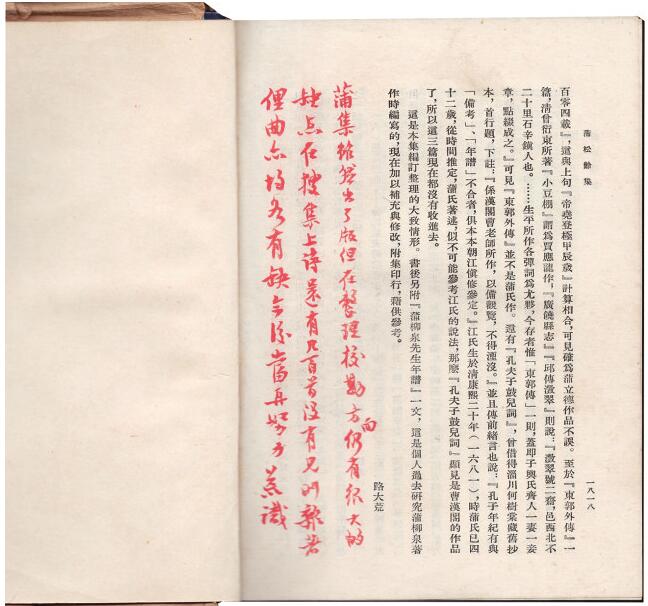 蒲松齡集
一八一八
百零四載』,這與上句『帝堯登極甲辰歲』計算相合,可見確爲蒲立德作品不誤。至於『東郭外傳』一
篇,清曾衍東所著『小豆棚』謂爲賈應龍作,『廣饒縣志』『邱傳澂翠』則說:『澂翠號二齋,邑西北不
二十里石辛鎮人也。……生平所作各彈詞爲尤夥,今存者惟「東郭傳」一則,蓋即子輿氏齊人一妻一妾
章,點綴成之。』可見『東郭外傳』並不是蒲氏作。還有『孔夫子鼓兒詞』,曾借得淄川何樹棠藏舊抄
本,首行題,下註:『係漢閣曹老師所作,以備觀覽,不得湮沒。』並且傳前緒言也說:『孔子年紀有與
「備考」、「年譜」不合者,俱本本朝江慎修參定。』江氏生於清康熙二十年(一六八一),時蒲氏已四
十二歲,從時間推定,蒲氏著述,似不可能參考江氏的說法,那麼『孔夫子鼓兒詞』顯見是曹漢閣的作品
了,所以這三篇現在都沒有收進去。
這是本集編訂整理的大致情形。書後另附『蒲柳泉先生年譜』一文,這是個人過去研究蒲柳泉著
作時編寫的,現在加以補充與修改,附集印行,藉供參考。
路大荒
蒲集雖然出了版但在整理校勘方面仍有很大的
缺点在搜集上诗還有几百首没有見 雜著
俚曲亦均各有缺今後當再努力 荒識